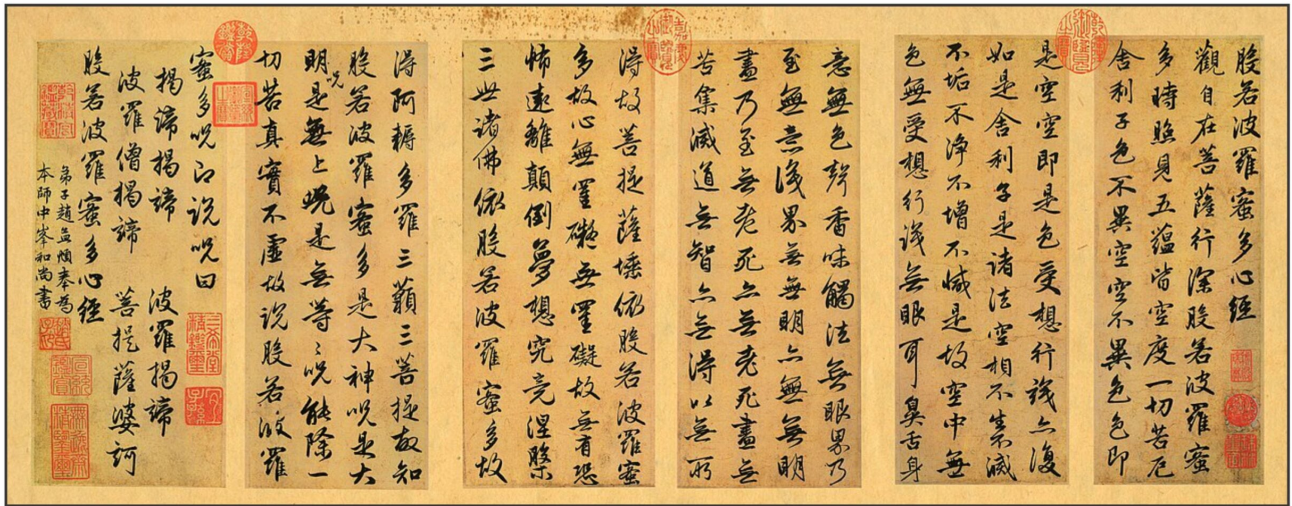 般若波羅蜜多心經
觀自在菩薩行深般若波羅蜜
多時照見五蘊皆空度一切苦厄
舍利子色不異空空不異色色即
是空空即是色受想行識亦復
如是舍利子是諸法空相不生不滅
不垢不淨不增不減是故空中無
色無受想行識無眼耳鼻舌身
意無色聲香味觸法無眼界乃
至無意識界無無明亦無無明
盡乃至無老死亦無老死盡無
苦集滅道無智亦無得以無所
得故菩提薩埵依般若波羅蜜
多故心無罣礙無罣礙故無有恐
怖遠離顛倒夢想究竟涅槃
三世諸佛依般若波羅蜜多故
得阿耨多羅三藐三菩提故知
般若波羅蜜多是大神咒是大
明咒是無上咒是無等〻咒能除一
切苦真實不虛故說般若波羅
蜜多咒即說咒曰
揭諦揭諦 波羅揭諦
波羅僧揭諦 菩提薩婆訶
般若波羅蜜多心經
弟子趙孟頫奉為
本師中峯和尚書
三希堂精鑑璽
宜子孫